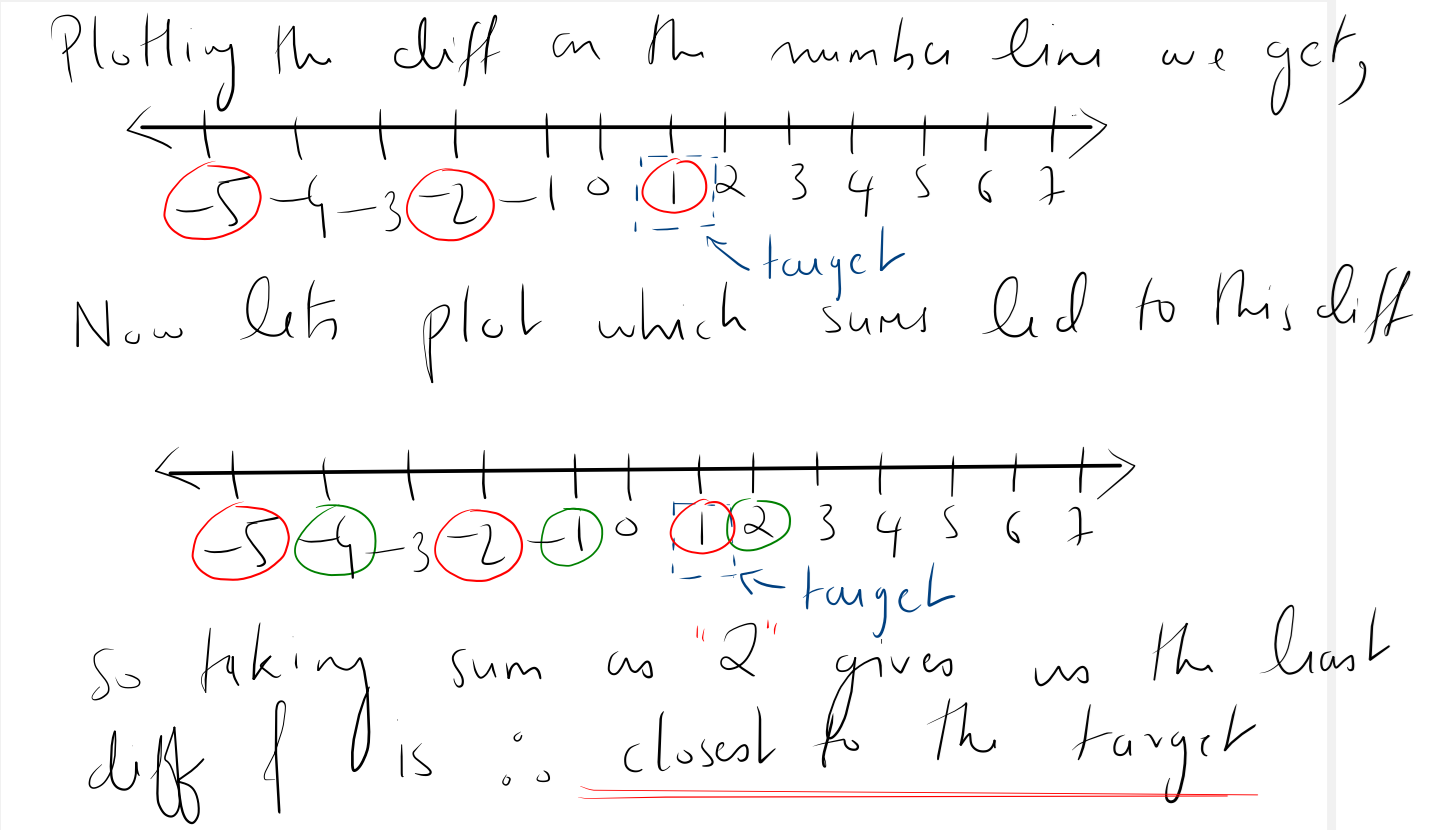 Plotting the diff on the number line we get,
-5 -4 -3 -2 -1 0 1 2 3 4 5 6 7
target
Now lets plot which sums led to this diff
-5 -4 -3 -2 -1 0 1 2 3 4 5 6 7
target
So taking sum as "2" gives us the least
diff & is ∴ closest to the target